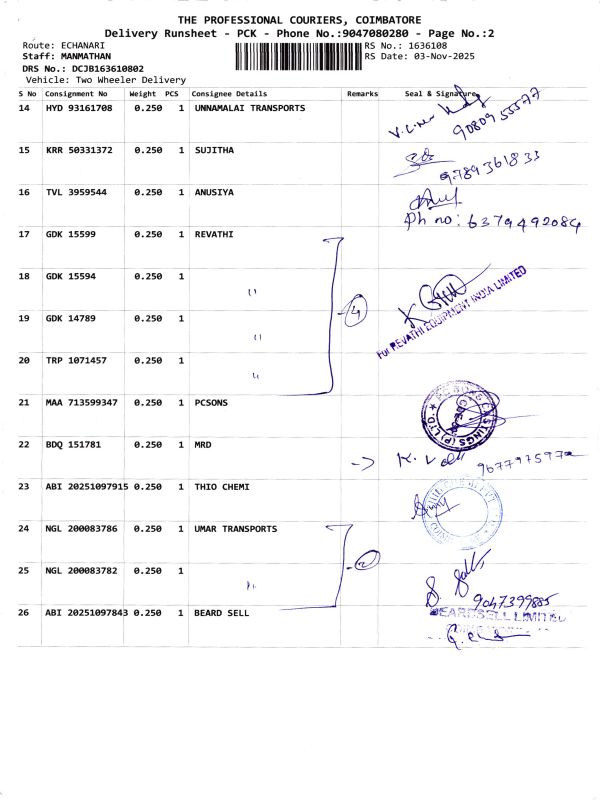 THE PROFESSIONAL COURIERS, COIMBATORE
Delivery Runsheet - PCK - Phone No.:9047080280 - Page No.:2
Route: ECHANARI
RS No.: 1636108
Staff: MANMATHAN
RS Date: 03-Nov-2025
DRS No.: DCJB163610802
Vehicle: Two Wheeler Delivery
S No Consignment No Weight PCS Consignee Details Remarks Seal & Signature
14 HYD 93161708 0.250 1 UNNAMALAI TRANSPORTS
9080955577
15 KRR 50331372 0.250 1 SUJITHA
9789361833
16 TVL 3959544 0.250 1 ANUSIYA
Ph no: 6379492084
17 GDK 15599 0.250 1 REVATHI
18 GDK 15594 0.250 1 "
19 GDK 14789 0.250 1 "
4
For REVATHI EQUIPMENT INDIA LIMITED
20 TRP 1071457 0.250 1 "
21 MAA 713599347 0.250 1 PCSONS
CASTINGS (P) LTD
22 BDQ 151781 0.250 1 MRD
-> K.
23 ABI 20251097915 0.250 1 THIO CHEMI
24 NGL 200083786 0.250 1 UMAR TRANSPORTS
2
25 NGL 200083782 0.250 1 "
9047399885
26 ABI 20251097843 0.250 1 BEARD SELL
BEARDSELL LIMITED